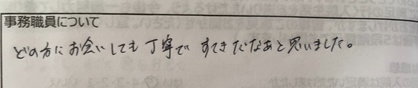 事務職員について
どの方にお会いしても丁寧ですてきだなあと思いました。